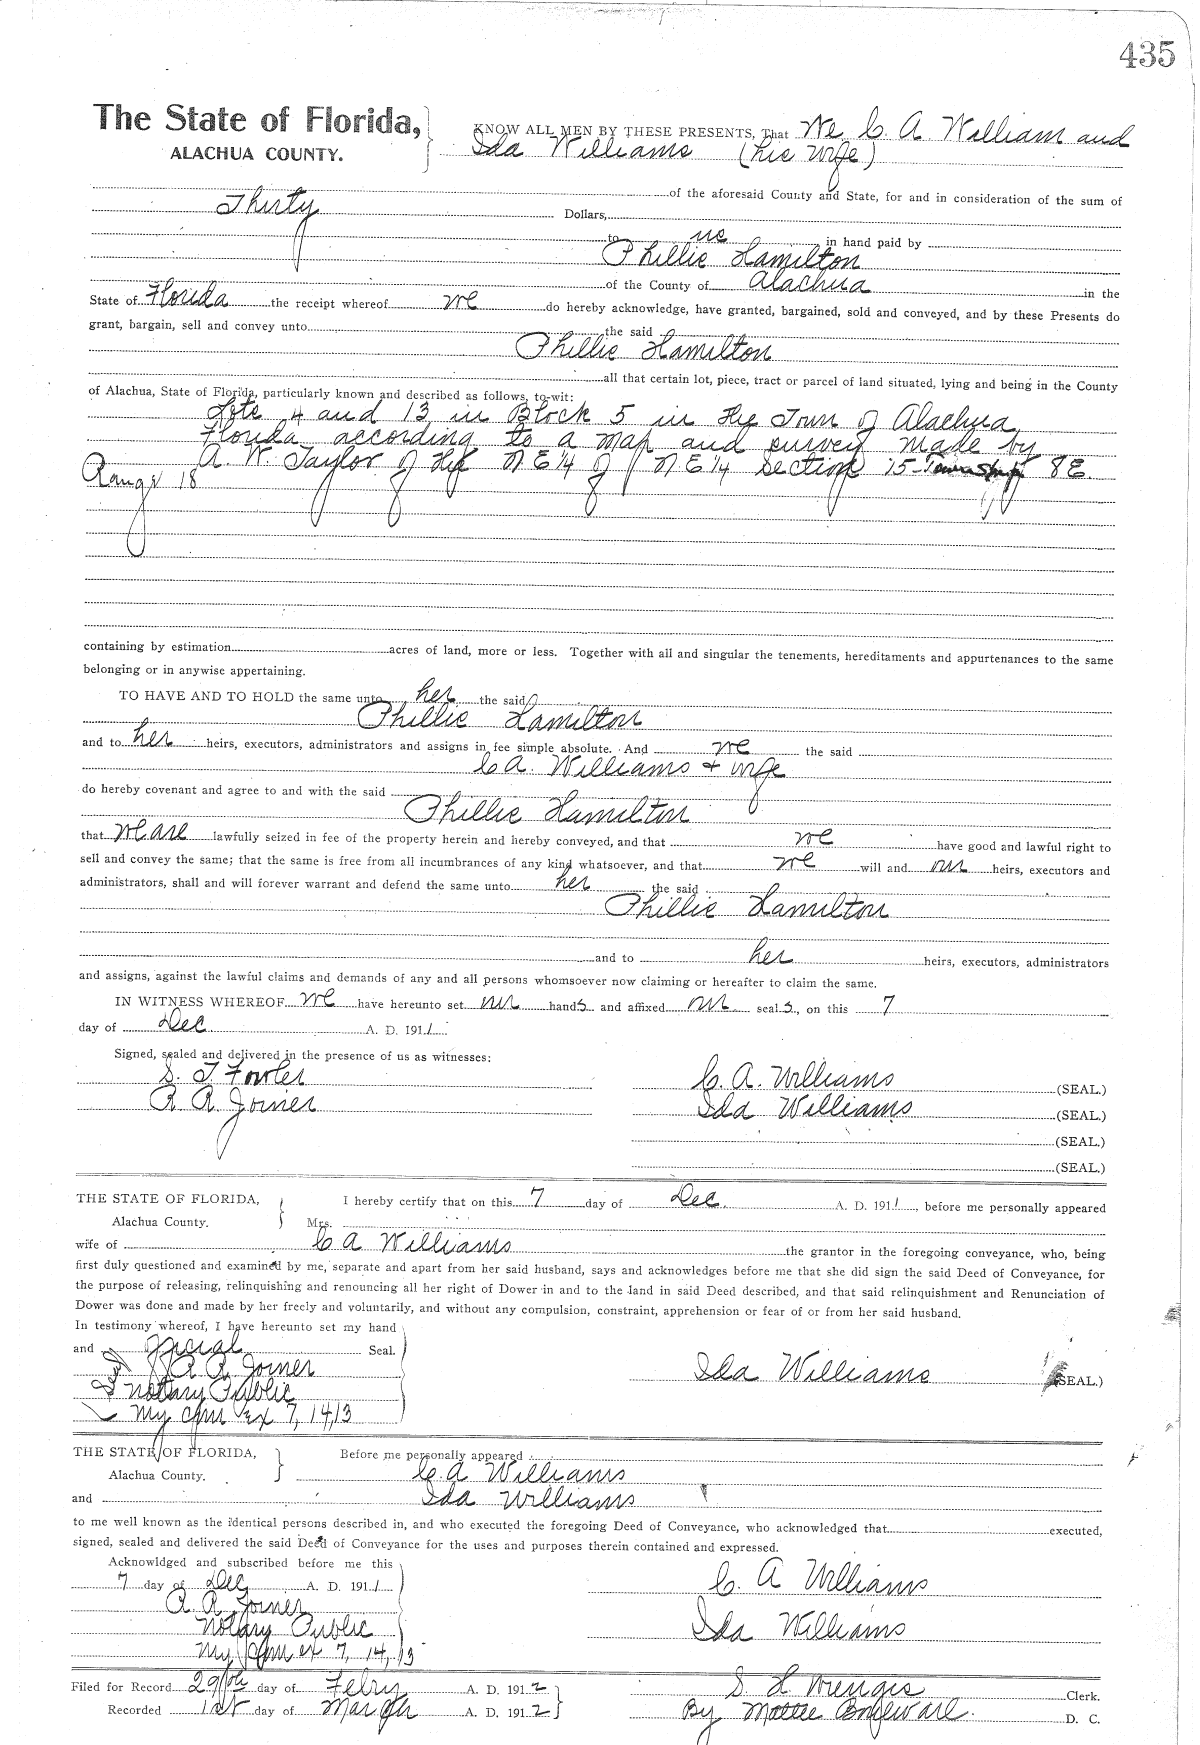 435
The State of Florida, KNOW ALL MEN BY THESE PRESENTS, That We C. A. William and
ALACHUA COUNTY. Ida Williams (his wife)
of the aforesaid County and State, for and in consideration of the sum of
Thirty Dollars,
to us in hand paid by
Phillie Hamilton
of the County of Alachua in the
State of Florida the receipt whereof we do hereby acknowledge, have granted, bargained, sold and conveyed, and by these Presents do
grant, bargain, sell and convey unto the said
Phillie Hamilton
all that certain lot, piece, tract or parcel of land situated, lying and being in the County
of Alachua, State of Florida, particularly known and described as follows, to-wit:
Lots 4 and 13 in Block 5 in the Town of Alachua
Florida according to a map and survey made by
A. W. Taylor of the NE 1/4 of NE 1/4 Section 15 Township 8 E.
Range 18
containing by estimation acres of land, more or less. Together with all and singular the tenements, hereditaments and appurtenances to the same
belonging or in anywise appertaining.
TO HAVE AND TO HOLD the same unto her the said
Phillie Hamilton
and to her heirs, executors, administrators and assigns in fee simple absolute. And we the said
C A. Williams + wife
do hereby covenant and agree to and with the said
Phillie Hamilton
that we are lawfully seized in fee of the property herein and hereby conveyed, and that we have good and lawful right to
sell and convey the same; that the same is free from all incumbrances of any kind whatsoever, and that we will and our heirs, executors and
administrators, shall and will forever warrant and defend the same unto her the said
Phillie Hamilton
and to her heirs, executors, administrators
and assigns, against the lawful claims and demands of any and all persons whomsoever now claiming or hereafter to claim the same.
IN WITNESS WHEREOF we have hereunto set our hands and affixed our seals, on this 7
day of Dec A. D. 1911.
Signed, sealed and delivered in the presence of us as witnesses:
S. T. Fowler C. A. Williams (SEAL.)
R. R. Joiner Ida Williams (SEAL.)
(SEAL.)
(SEAL.)
THE STATE OF FLORIDA, I hereby certify that on this 7 day of Dec. A. D. 1911, before me personally appeared
Alachua County. Mrs.
wife of C A Williams the grantor in the foregoing conveyance, who, being
first duly questioned and examined by me, separate and apart from her said husband, says and acknowledges before me that she did sign the said Deed of Conveyance, for
the purpose of releasing, relinquishing and renouncing all her right of Dower in and to the land in said Deed described, and that said relinquishment and Renunciation of
Dower was done and made by her freely and voluntarily, and without any compulsion, constraint, apprehension or fear of or from her said husband.
In testimony whereof, I have hereunto set my hand
and official Seal.
R. R. Joiner Ida Williams (SEAL.)
Notary Public
My Com ex 7, 14, 13
THE STATE OF FLORIDA, Before me personally appeared
Alachua County. C. A Williams
and Ida Williams
to me well known as the identical persons described in, and who executed the foregoing Deed of Conveyance, who acknowledged that executed,
signed, sealed and delivered the said Deed of Conveyance for the uses and purposes therein contained and expressed.
Acknowldged and subscribed before me this
7 day of Dec A. D. 1911 C. A Williams
R. R. Joiner
Notary Public Ida Williams
My Com ex 7, 14, 13
Filed for Record 29th day of Febry A. D. 1912 S. H. Wienges Clerk.
Recorded 1st day of March A. D. 1912 By Mattie D. C.